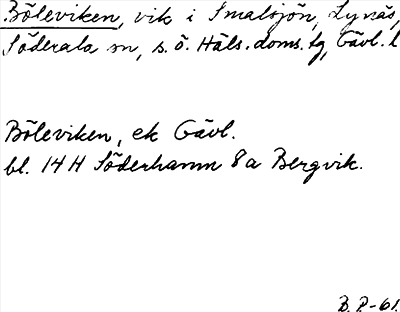 Böleviken, vik i Smalsjön, Lynäs,
Söderala sn, s. ö. Häls. doms. tg, Gävl. l
Böleviken, ek Gävl.
bl. 14 H Söderhamn 8a Bergvik.
B. P-61.